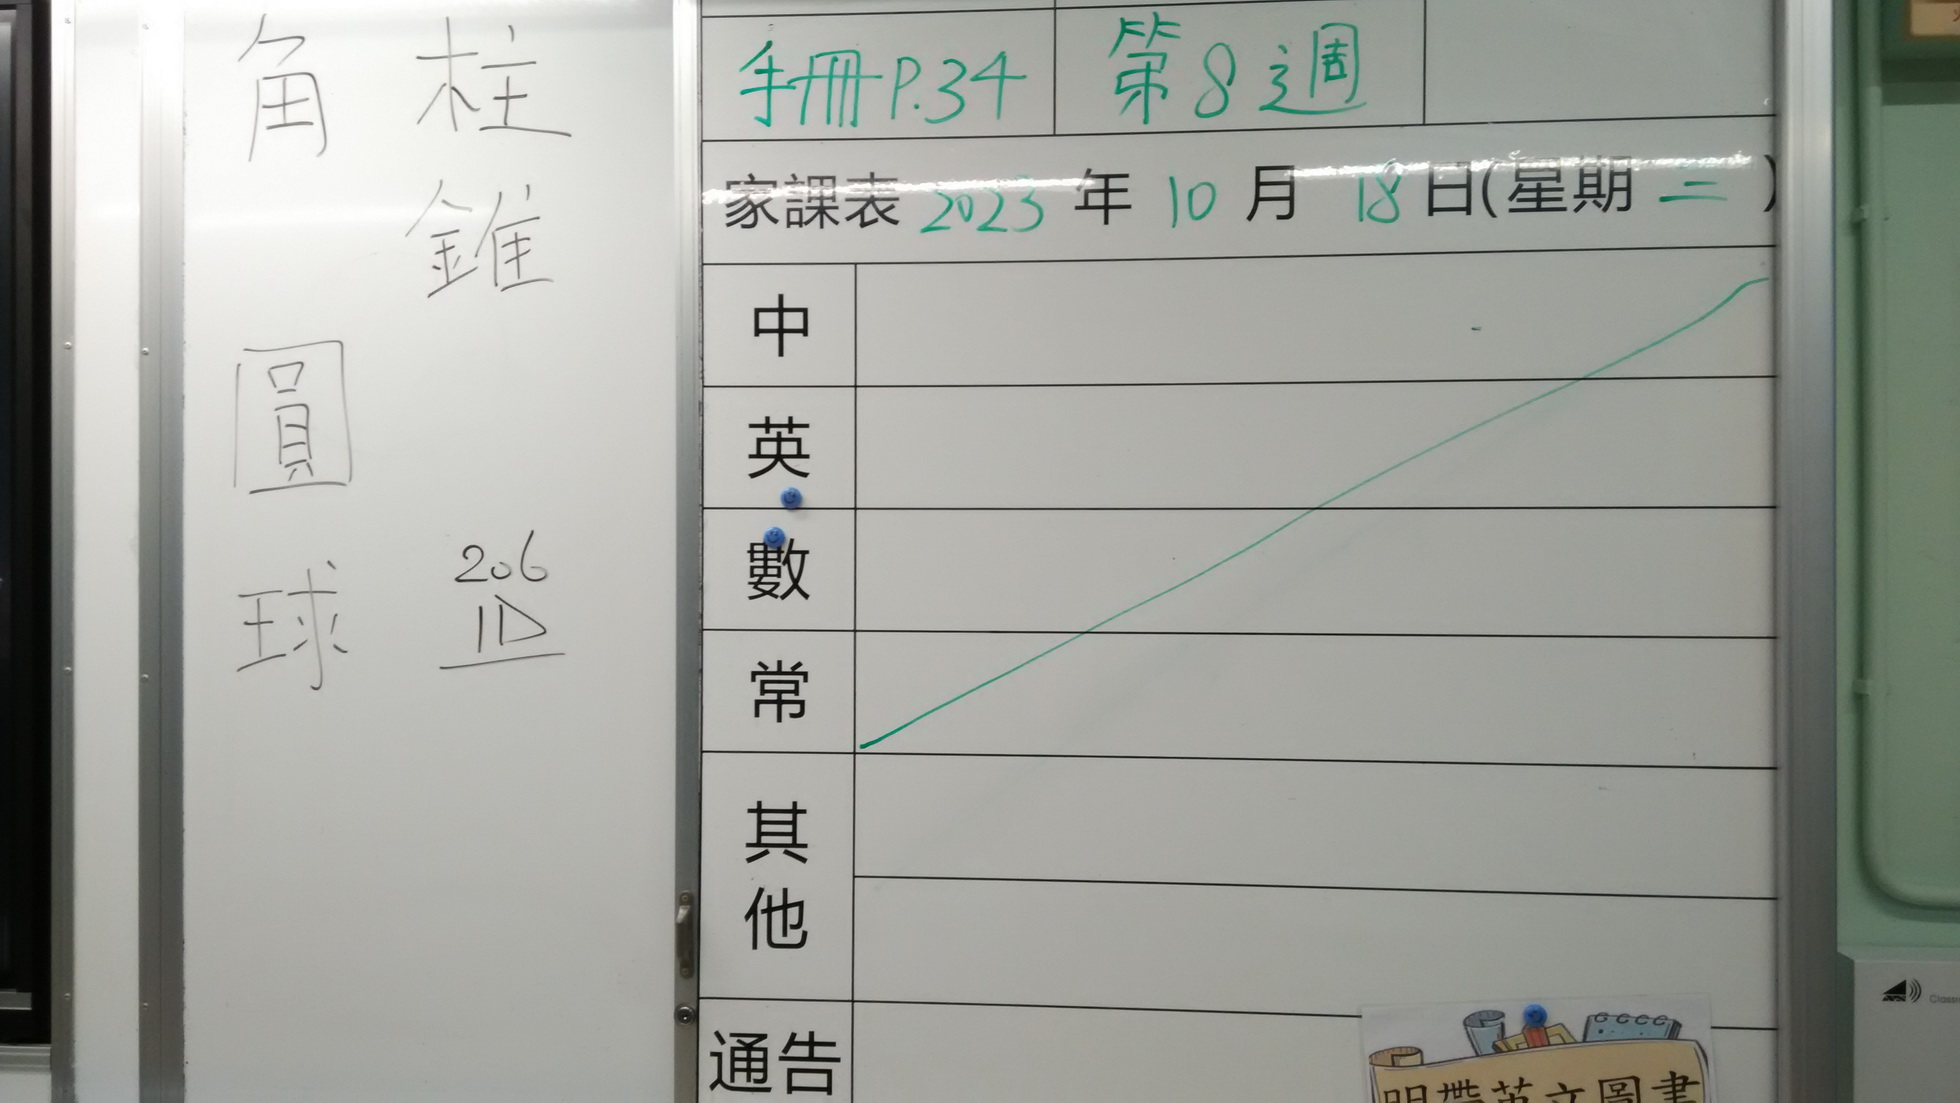 角 柱
錐
圓
球
206
1D
手冊P.34 第8週
家課表 2023 年 10 月 18 日(星期 三 )
中
英
數
常
其他
通告
明帶英文圖書